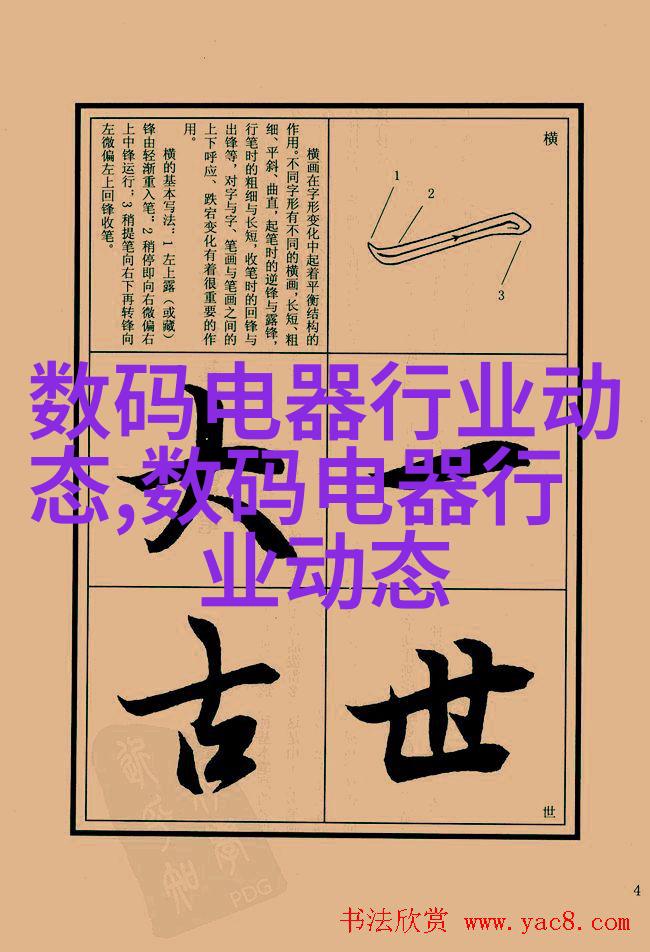 横
1
2
3
横画在字形变化中起着平衡结构的
作用。不同字形有不同的横画，长短、粗
细、平斜、曲直，起笔时的逆锋与露锋，
行笔时的粗细与长短，收笔时的回锋与
出锋等，对字与字、笔画与笔画之间的
上下呼应、跌宕变化有着很重要的作
用。
横的基本写法：1 左上露（或藏）
锋由轻渐重入笔；2 稍停即向右微偏右
上中锋运行；3 稍提笔向右下再转锋向
左微偏左上回锋收笔。
数码电器行业动
态,数码电器行
业动态
一
大
世
古
世
PDG
4
书法欣赏 www.yac8.com